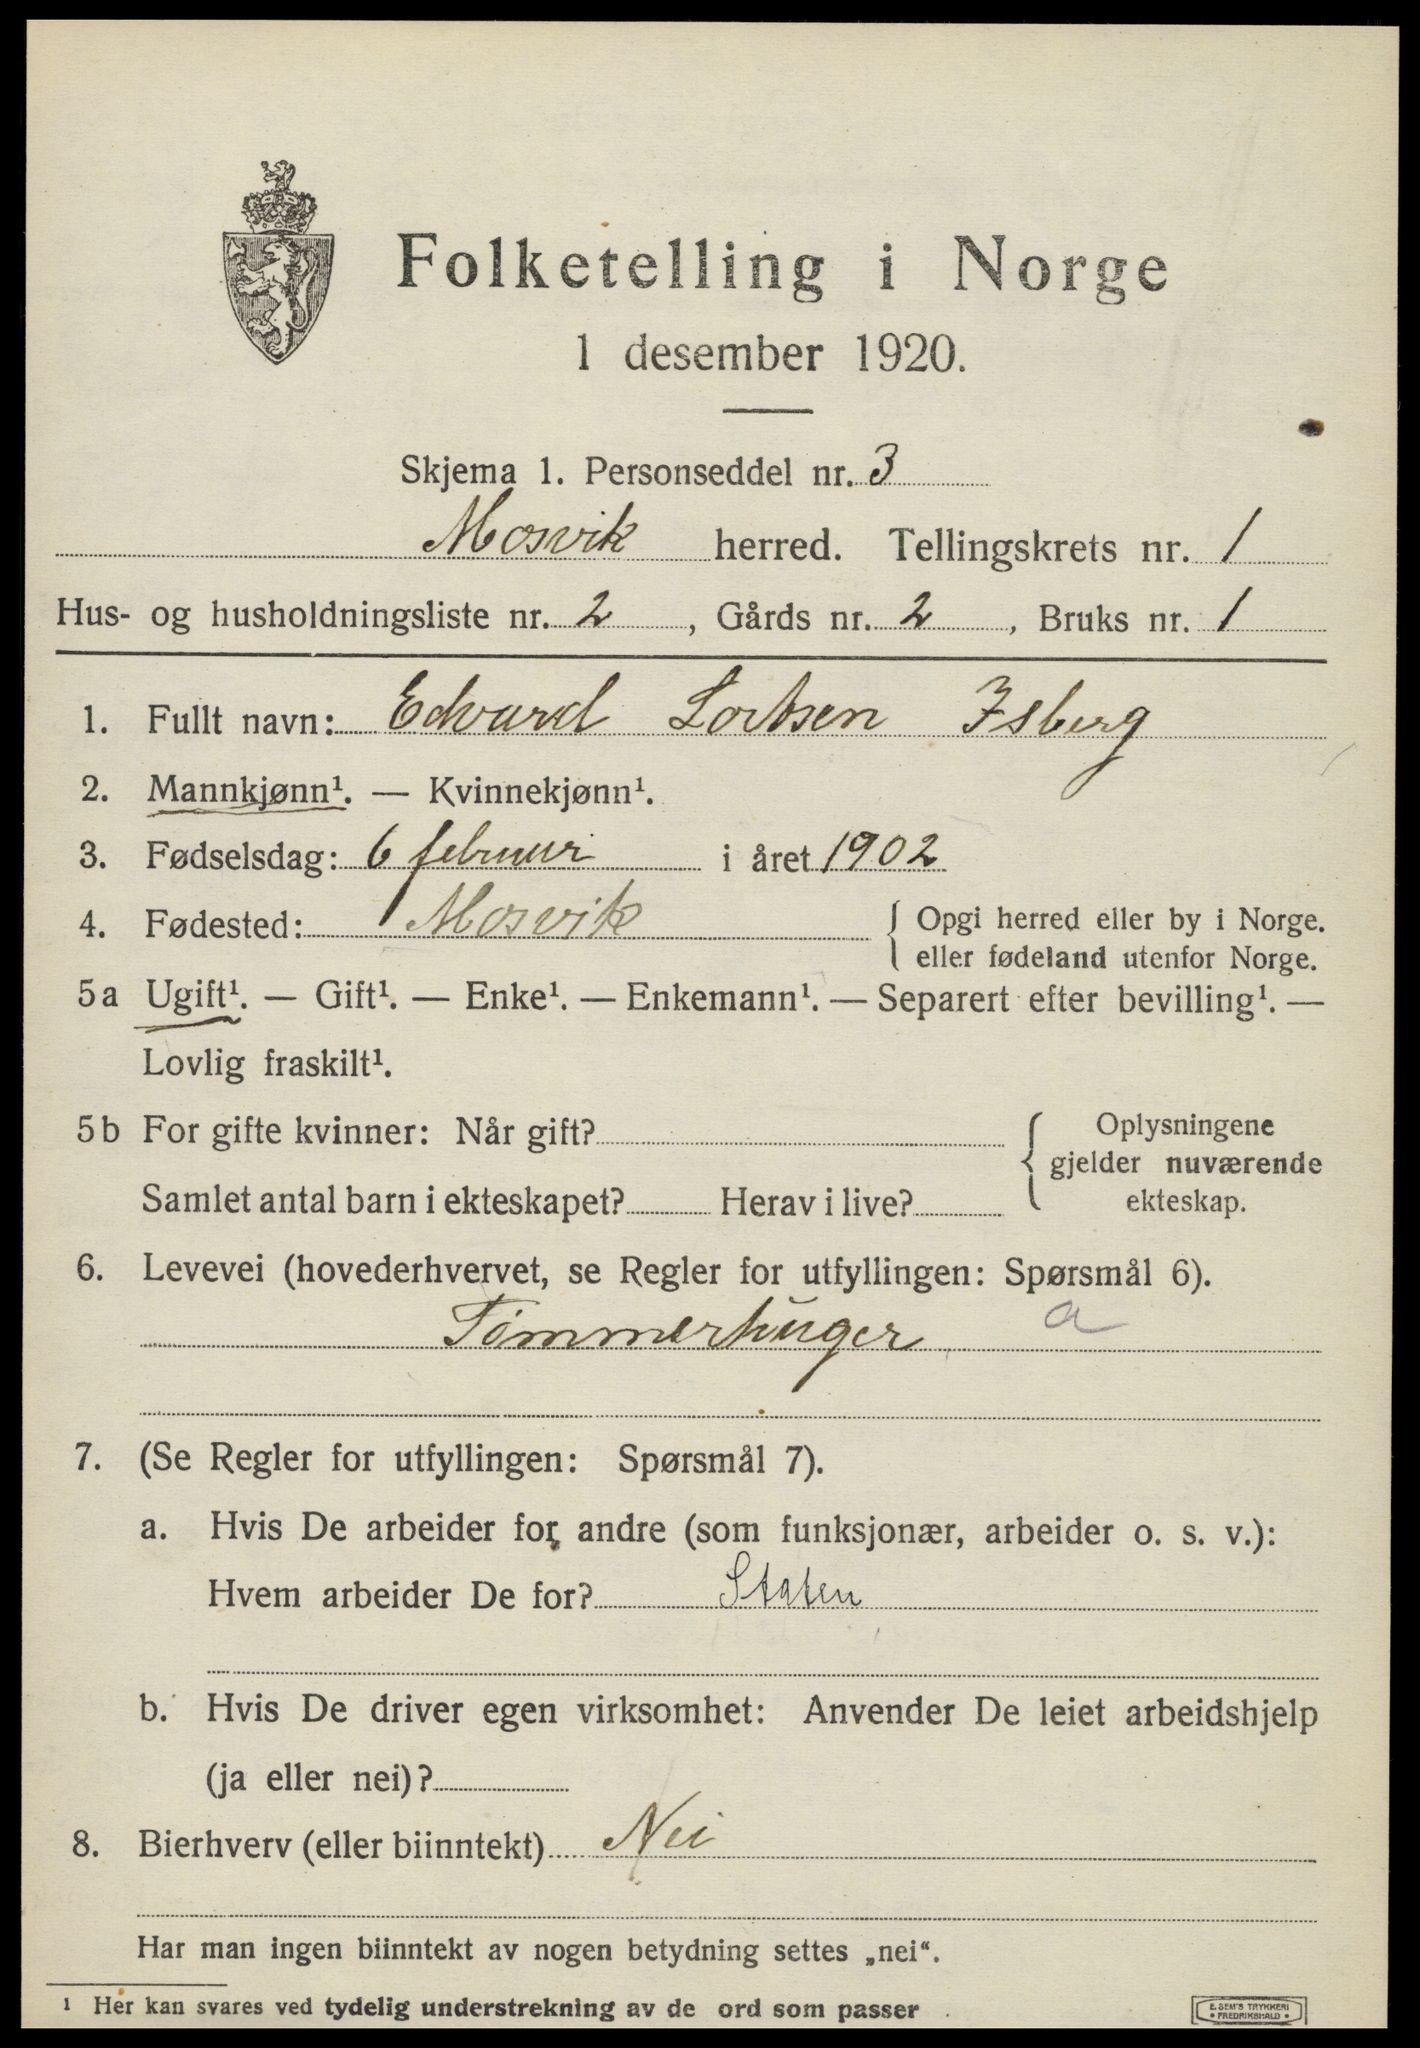 Folketelling i Norge
1 desember 1920.
Skjema 1. Personseddel nr. 3
Mosvik herred. Tellingskrets nr. 1
Hus- og husholdningsliste nr. 2, Gårds nr. 2, Bruks nr. 1
1. Fullt navn: Edvard Lortsen Isberg
2. Mannkjønn¹. — Kvinnekjønn¹.
3. Fødselsdag: 6 februar i året 1902
4. Fødested: Mosvik { Opgi herred eller by i Norge.
eller fødeland utenfor Norge.
5a Ugift¹. — Gift¹. — Enke¹. — Enkemann¹. — Separert efter bevilling¹. —
Lovlig fraskilt¹.
5b For gifte kvinner: Når gift? { Oplysningene
gjelder nuværende
Samlet antal barn i ekteskapet? Herav i live? ekteskap.
6. Levevei (hovederhvervet, se Regler for utfyllingen: Spørsmål 6).
Tömmerhuger a
7. (Se Regler for utfyllingen: Spørsmål 7).
a. Hvis De arbeider for andre (som funksjonær, arbeider o. s. v.):
Hvem arbeider De for? Staten
b. Hvis De driver egen virksomhet: Anvender De leiet arbeidshjelp
(ja eller nei)?
8. Bierhverv (eller biinntekt) Nei
Har man ingen biinntekt av nogen betydning settes „nei“.
¹ Her kan svares ved tydelig understrekning av de ord som passer
E. SEM'S TRYKKERI
• FREDRIKSHALD •